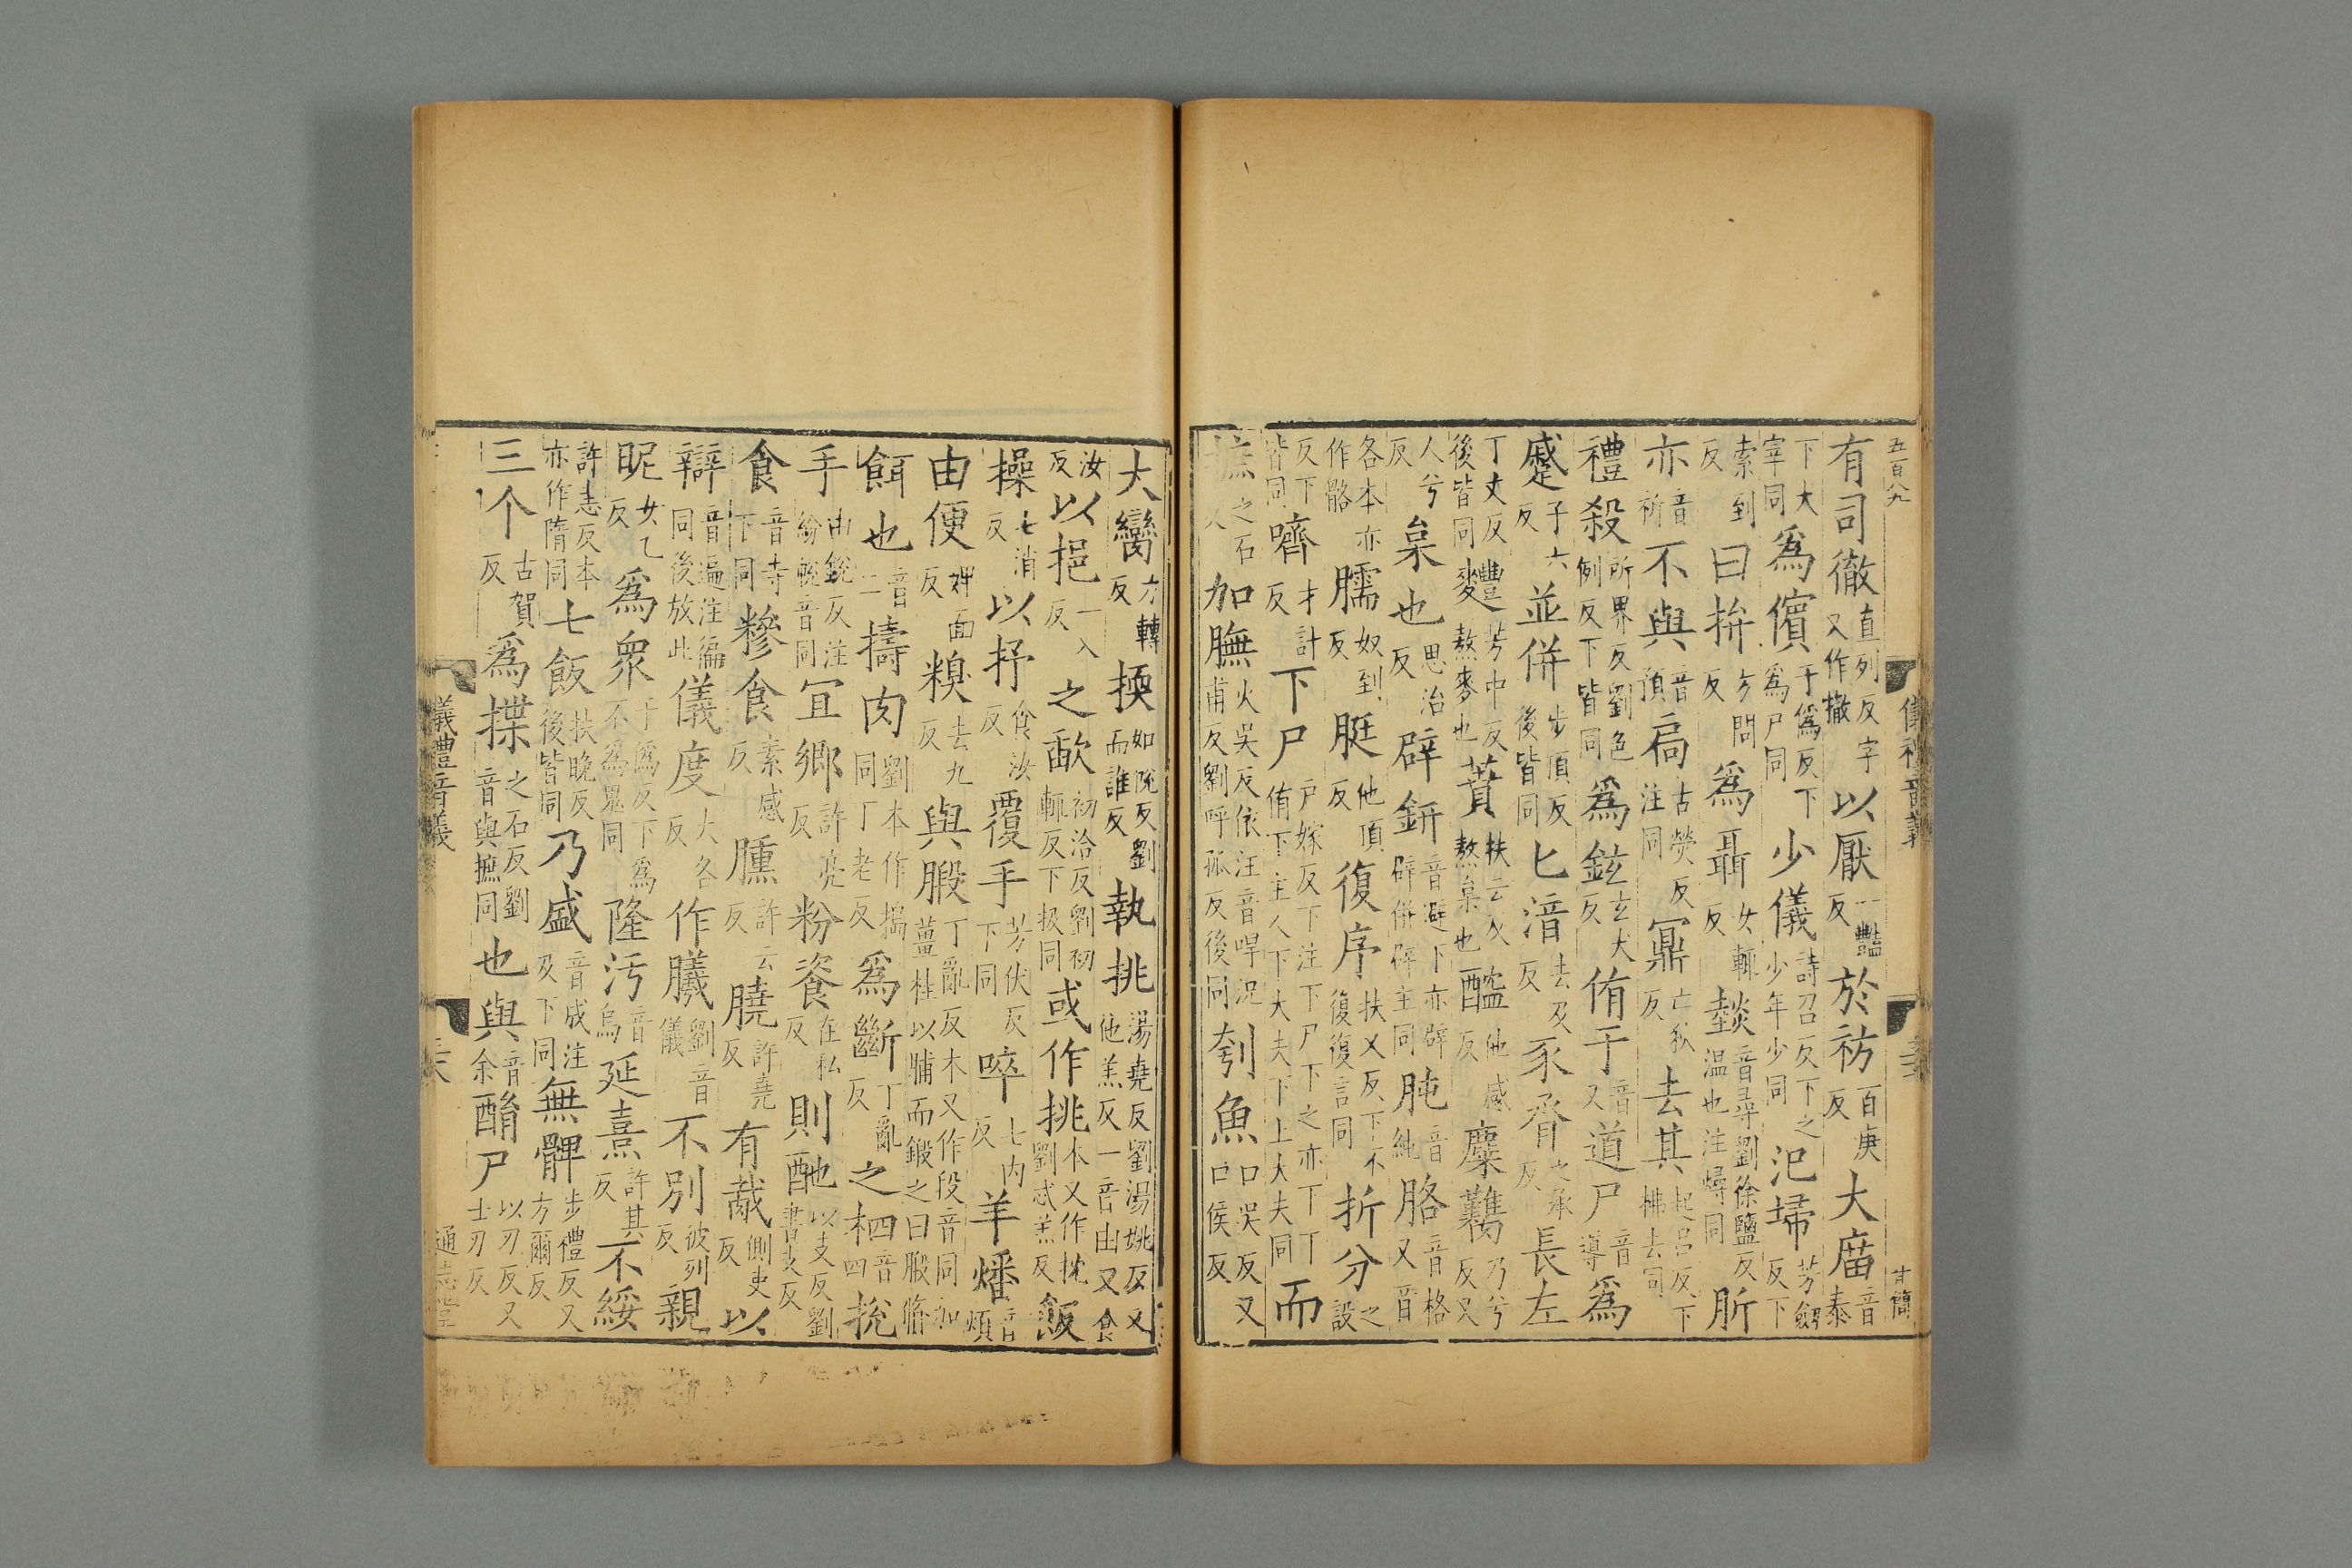 五百八九
儀禮音義
甘簡
有司徹直列反字又作撤以厭一豔反於祊百庚反大庿音泰
下大宰同爲儐于僞反下爲尸同少儀詩召反下之少年少同氾埽芳劒反下
索到反曰拚方問反爲聶女輒反燅音尋劉徐鹽反温也注燖同肵
亦音祈不與音預扃古熒反注同鼏亡狄反去其起吕反下拂去同
禮殺所界反劉色例反下皆同爲鉉玄犬反侑于音又道尸音導爲
蹙子六反並併步頂反後皆同匕湆去及反豕脀之承反長左
丁丈反後皆同麷芳中反熬麥也蕡扶云反熬枲也醓他感反麋臡乃兮反又
人兮反枲也思治反辟鉶音避下亦辟辟併辟主同肫音純胳音格又音
各本亦作骼臑奴到反脡他頂反復序扶又反下不復復言同折分之設
反下皆同嚌才計反下尸戶嫁反下注下尸下之亦下丁侑下主人下大夫下上大夫同而
摭之石反加膴火吳反依注音哻况甫反劉呼孤反後同刳魚口吳反又口侯反
大臠力轉反擩如悅反劉而誰反執挑湯堯反劉湯姚反又他羔反一音由又食
汝反以挹一入反之歃初洽反劉初輒反下扱同或作挑本又作抌劉忒羔反飯
操七消反以抒食汝反覆手芳伏反下同啐七内反羊燔音煩
由便婢面反糗去九反與腶丁亂反本又作段音同加薑桂以脯而鍛之曰腶脩
餌也音二擣肉劉本作搗同丁老反爲斷丁亂反之柶音四挩
手由銳反注紛帨音同冝鄉許亮反粉餈在私反則酏以支反劉書支反
食音寺下同糝食素感反臐許云反膮許堯反有胾側吏反以
辯音遍注徧同後放此儀度大各反作㬢劉音儀不別彼列反親
昵女乙反爲衆于僞反下爲不爲鬼同隆汚音烏延熹許其反不綏
許恚反本亦作隋同七飯扶晚反後皆同乃盛音成注及下同無髀步禮反又方爾反
三个古賀反爲揲之石反劉音與摭同也與音余酳尸以刃反又士刃反
儀禮音義
通志堂